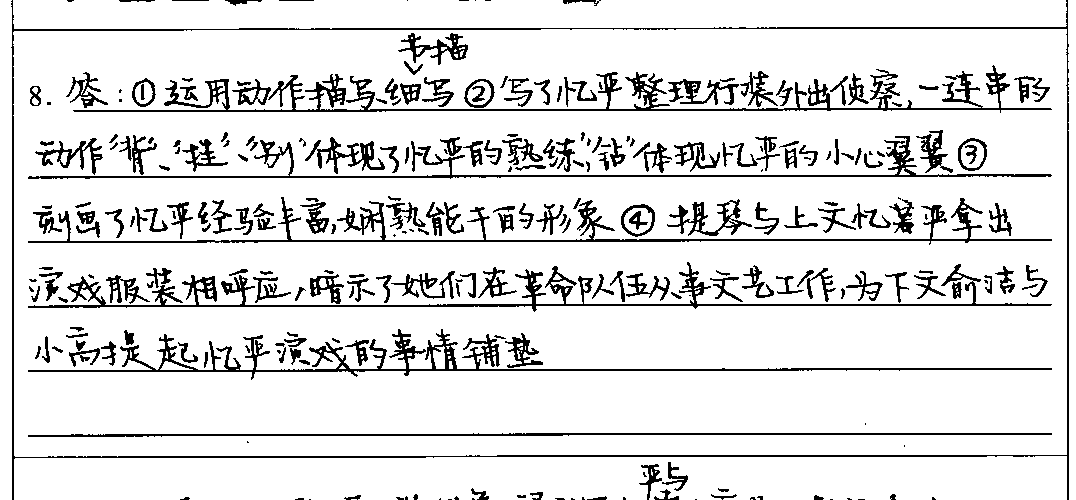 节描
8. 答：①运用动作描写、细写②写了忆平整理行装外出侦察，一连串的
动作“背”、“挂”、“别”体现了忆平的熟练，“钻”体现忆平的小心翼翼③
刻画了忆平经验丰富，娴熟能干的形象④提琴与上文忆著平拿出
演戏服装相呼应，暗示了她们在革命队伍从事文艺工作，为下文俞洁与
小高提起忆平演戏的事情铺垫
平与